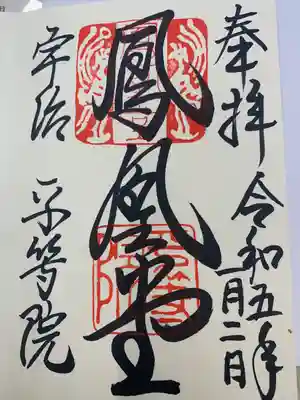 奉拝 令和五年
一月二日
鳳凰堂
宇治 平等院